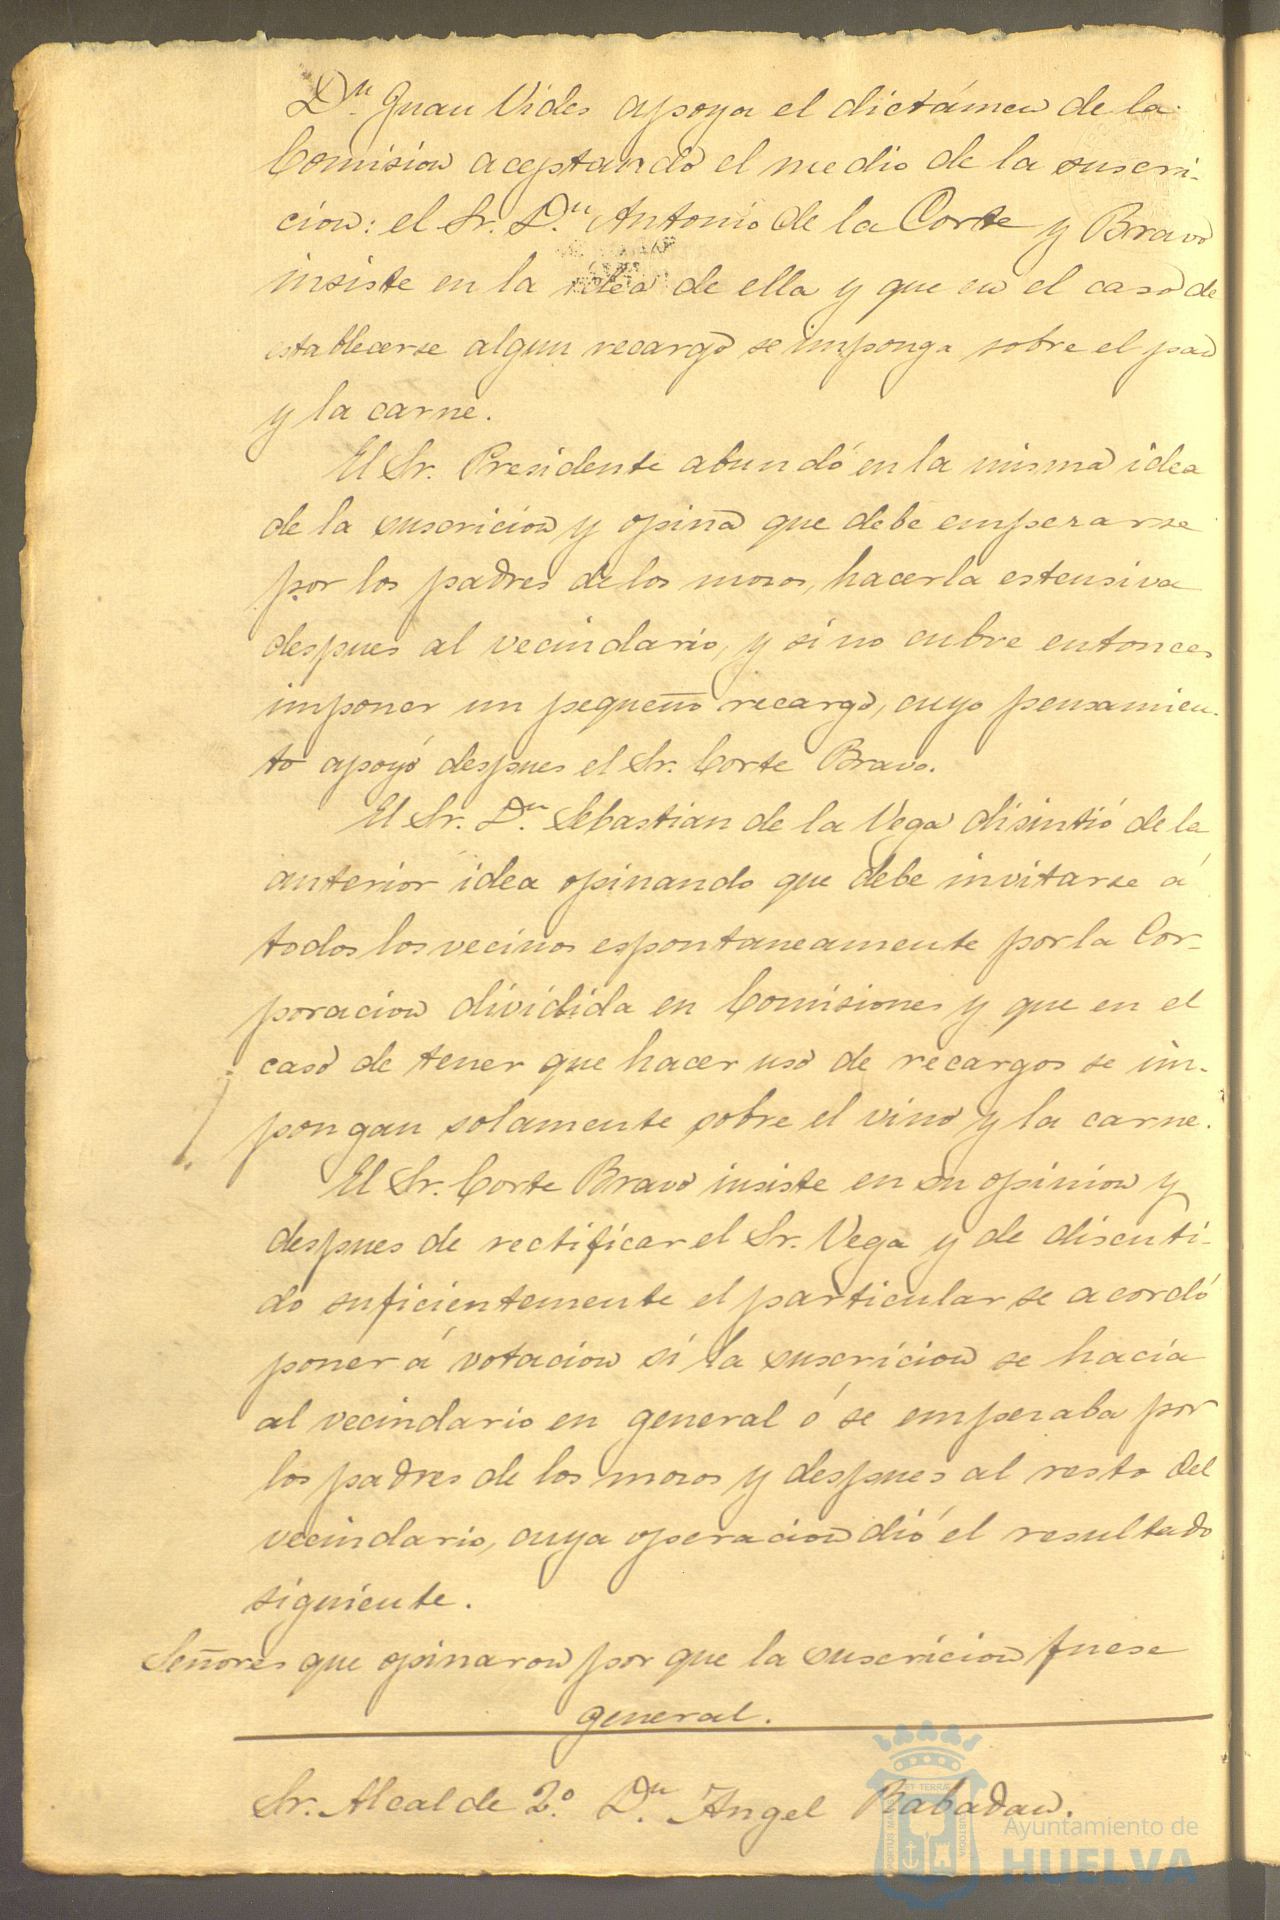 Dn. Juan Vides apoya el dictámen de la
Comision aceptando el medio de la suscri-
cion: el Sr. Dn. Antonio de la Corte y Bravo
insiste en la idea de ella y que en el caso de
establecerse algun recargo se imponga sobre el pan
y la carne.
El Sr. Presidente abundó en la misma idea
de la suscricion y opina que debe empezarse
por los padres de los mozos, hacerla estensiva
despues al vecindario, y si no cubre entonces
imponer un pequeño recargo, cuyo pensamien-
to apoyó despues el Sr. Corte Bravo.
El Sr. Dn. Sebastian de la Vega disintió de la
anterior idea opinando que debe invitarse á
todos los vecinos espontaneamente por la Cor-
poracion dividida en Comisiones y que en el
caso de tener que hacer uso de recargos se im-
pongan solamente sobre el vino y la carne.
El Sr. Corte Bravo insiste en su opinion y
despues de rectificar el Sr. Vega y de discuti-
do suficientemente el particular se acordó
poner á votacion si la suscricion se hacia
al vecindario en general ó se empezaba por
los padres de los mozos y despues al resto del
vecindario, cuya operacion dió el resultado
siguiente.
Señores que opinaron por que la suscricion fuese
general.
Sr. Alcalde 2º. Dn. Angel Rabadan.
Ayuntamiento de
HUELVA